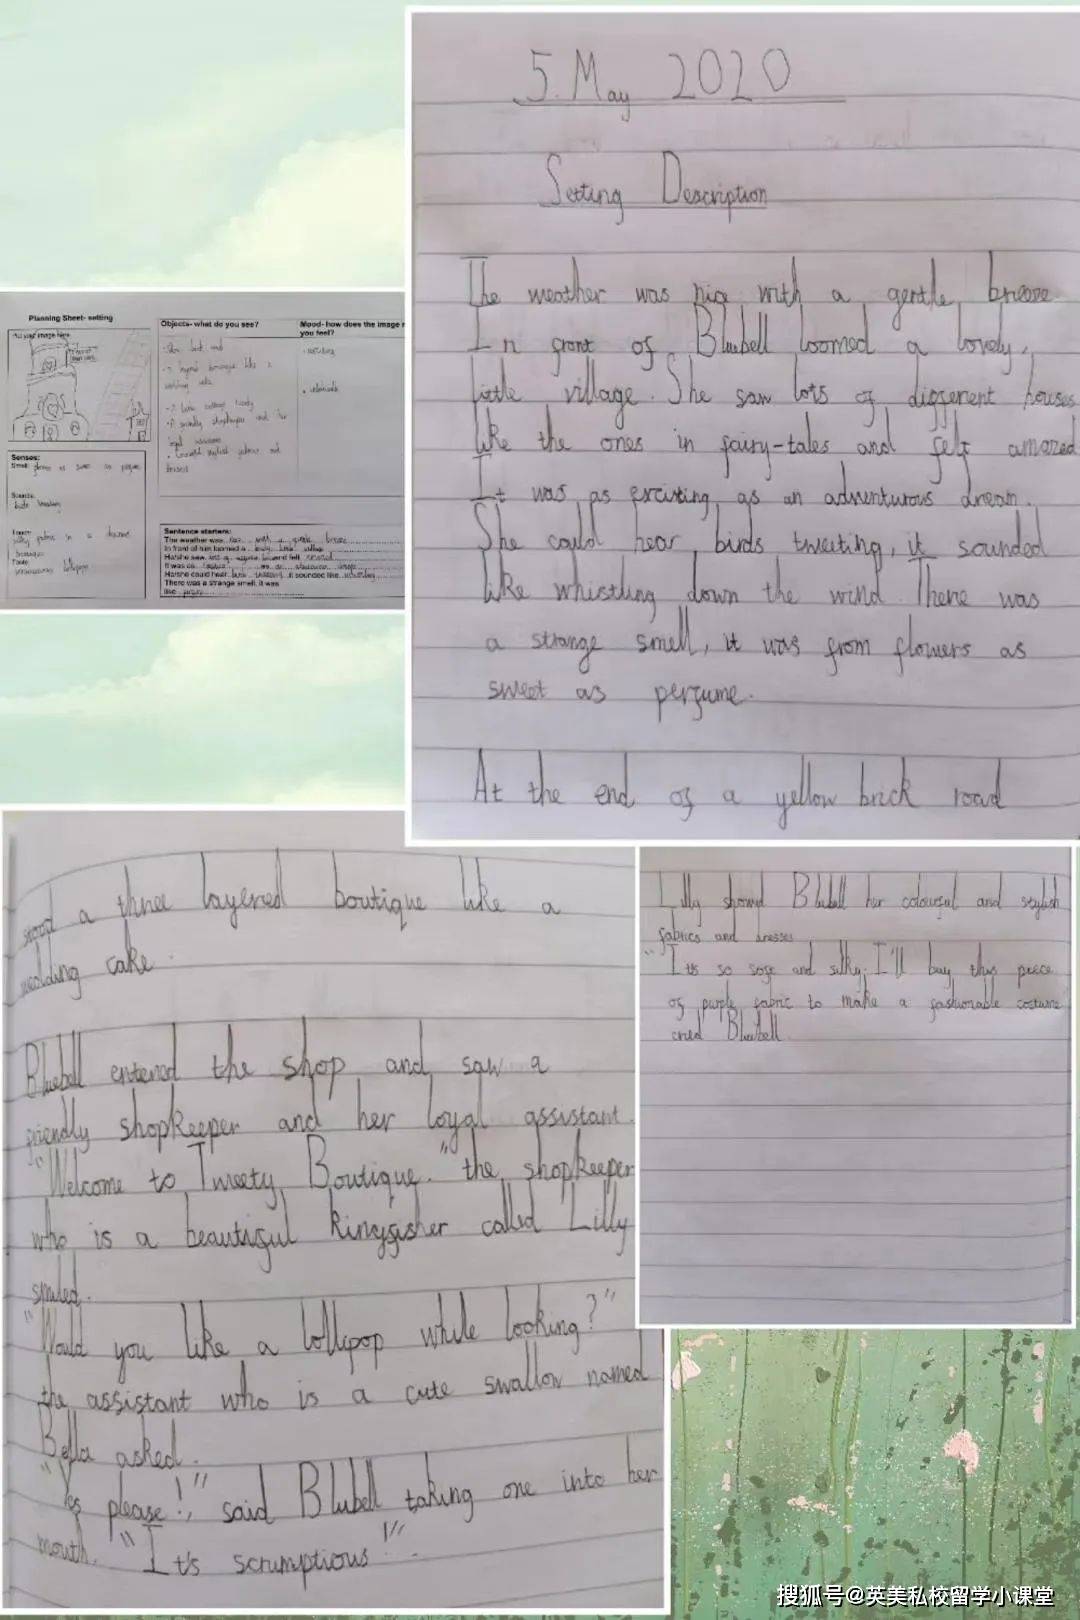 5. May 2020
Setting Description
The weather was nice with a gentle breeze.
In front of Bluebell loomed a lovely,
little village. She saw lots of different houses
like the ones in fairy-tales and felt amazed
It was as exciting as an adventurous dream.
She could hear birds tweeting, it sounded
like whistling down the wind. There was
a strange smell, it was from flowers as
sweet as perfume.
At the end of a yellow brick road
Planning Sheet- setting
Put your image here
Objects- what do you see?
Mood- how does the image
you feel?
Senses:
Smell: flowers as sweet as perfume
Sounds:
birds tweeting
Touch:
Taste:
lollipop
Sentence starters:
The weather was nice with a gentle breeze
In front of him loomed a lovely little village
He/she saw lots of and felt amazed
It was as
He/she could hear birds tweeting it sounded like whistling
There was a strange smell, it was
like
stood a three layered boutique like a
wedding cake.
Bluebell entered the shop and saw a
friendly shopkeeper and her loyal assistant.
"Welcome to Tweety Boutique." the shopkeeper
who is a beautiful kingfisher called Lilly
smiled.
"Would you like a lollipop while looking?"
the assistant who is a cute swallow named
Bella asked.
"Yes please!," said Blubell taking one into her
mouth. "It's scrumptious!".
Lilly showed Blubell her colourful and stylish
fabrics and dresses
"It's so soft and silky. I'll buy this piece
of purple fabric to make a fashionable costume"
cried Bluebell.
搜狐号@英美私校留学小课堂